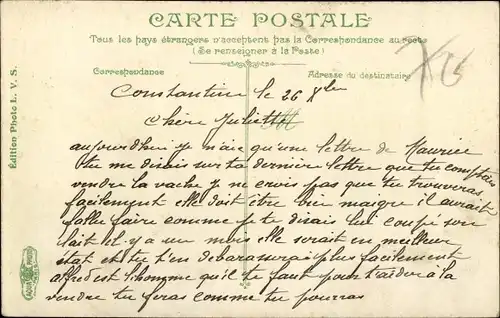 CARTE POSTALE
Tous les pays étrangers n'acceptent pas la Correspondance au recto
(Se renseigner à la Poste)
Correspondance
Adresse du destinataire
Édition Photo L. V. S.
Constantine le 26 Xbre
Chère Juliette
aujourd'hui je n'ai qu'une lettre de Maurice
tu me dirais sur ta dernière lettre que tu comptais
vendre la vache je ne crois pas que tu trouveras
facilement elle doit être bien maigre il aurait
fallu faire comme je te dirais lui coupé son
lait il y a un mois elle serait en meilleur
état et tu t'en debarasserai plus facilement
alfred est l'homme qu'il te faut pour t'aider à la
vendre tu feras comme tu pourras